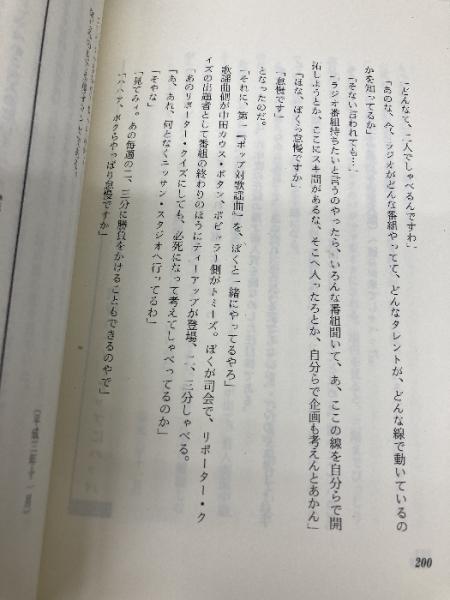 「どんなて、二人でしゃべるんですわ」
「あのな、今、ラジオがどんな番組やってて、どんなタレントが、どんな線で動いているの
かを知ってるか」
「そない言われても…」
「ラジオ番組持ちたいと言うのやったら、いろんな番組聞いて、あ、ここの線を自分らで開
拓しようとか、ここにスキ間があるな、そこへ入ったろとか、自分らで企画も考えんとあかん」
「ほな、ぼくら怠慢ですか」
「怠慢です」
となったのだ。
「それに、第一『ポップ対歌謡曲』を、ぼくと一緒にやってるやろ」
歌謡曲側が中田カウス・ボタン、ポピュラー側がトミーズ。ぼくが司会で、リポーター・ク
イズの出題者として番組の終わりのほうにティーアップが登場、二、三分しゃべる。
「あのリポーター・クイズにしても、必死になって考えてしゃべってるのか」
「あ、あれ、何となくニッサン・スタジオへ行ってるわ」
「そやな」
「見てみィ。あの毎週の二、三分に勝負をかけることもできるのやで」
「ハハア、ボクらやっぱり怠慢ですか」
200